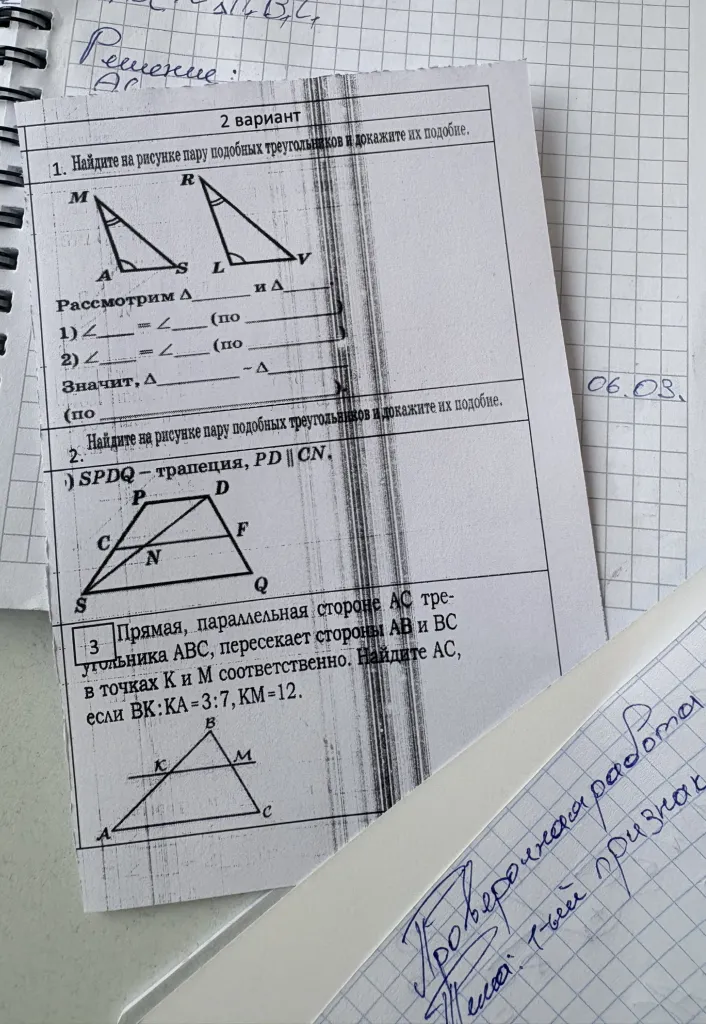 Решение:
AC
2 вариант
1. Найдите на рисунке пару подобных треугольников и докажите их подобие.
M
R
A
S
L
V
Рассмотрим Δ______ и Δ______
1) ∠____ = ∠____ (по __________)
2) ∠____ = ∠____ (по __________)
Значит, Δ________ ~ Δ________
(по ____________________).
06.03.
2. Найдите на рисунке пару подобных треугольников и докажите их подобие.
) SPDQ – трапеция, PD || CN.
P
D
C
F
N
S
Q
3 Прямая, параллельная стороне AC тре-
угольника ABC, пересекает стороны AB и BC
в точках K и M соответственно. Найдите AC,
если BK:KA=3:7, KM=12.
B
K
M
A
C
Проверочная работа
Тема: 1-ый признак